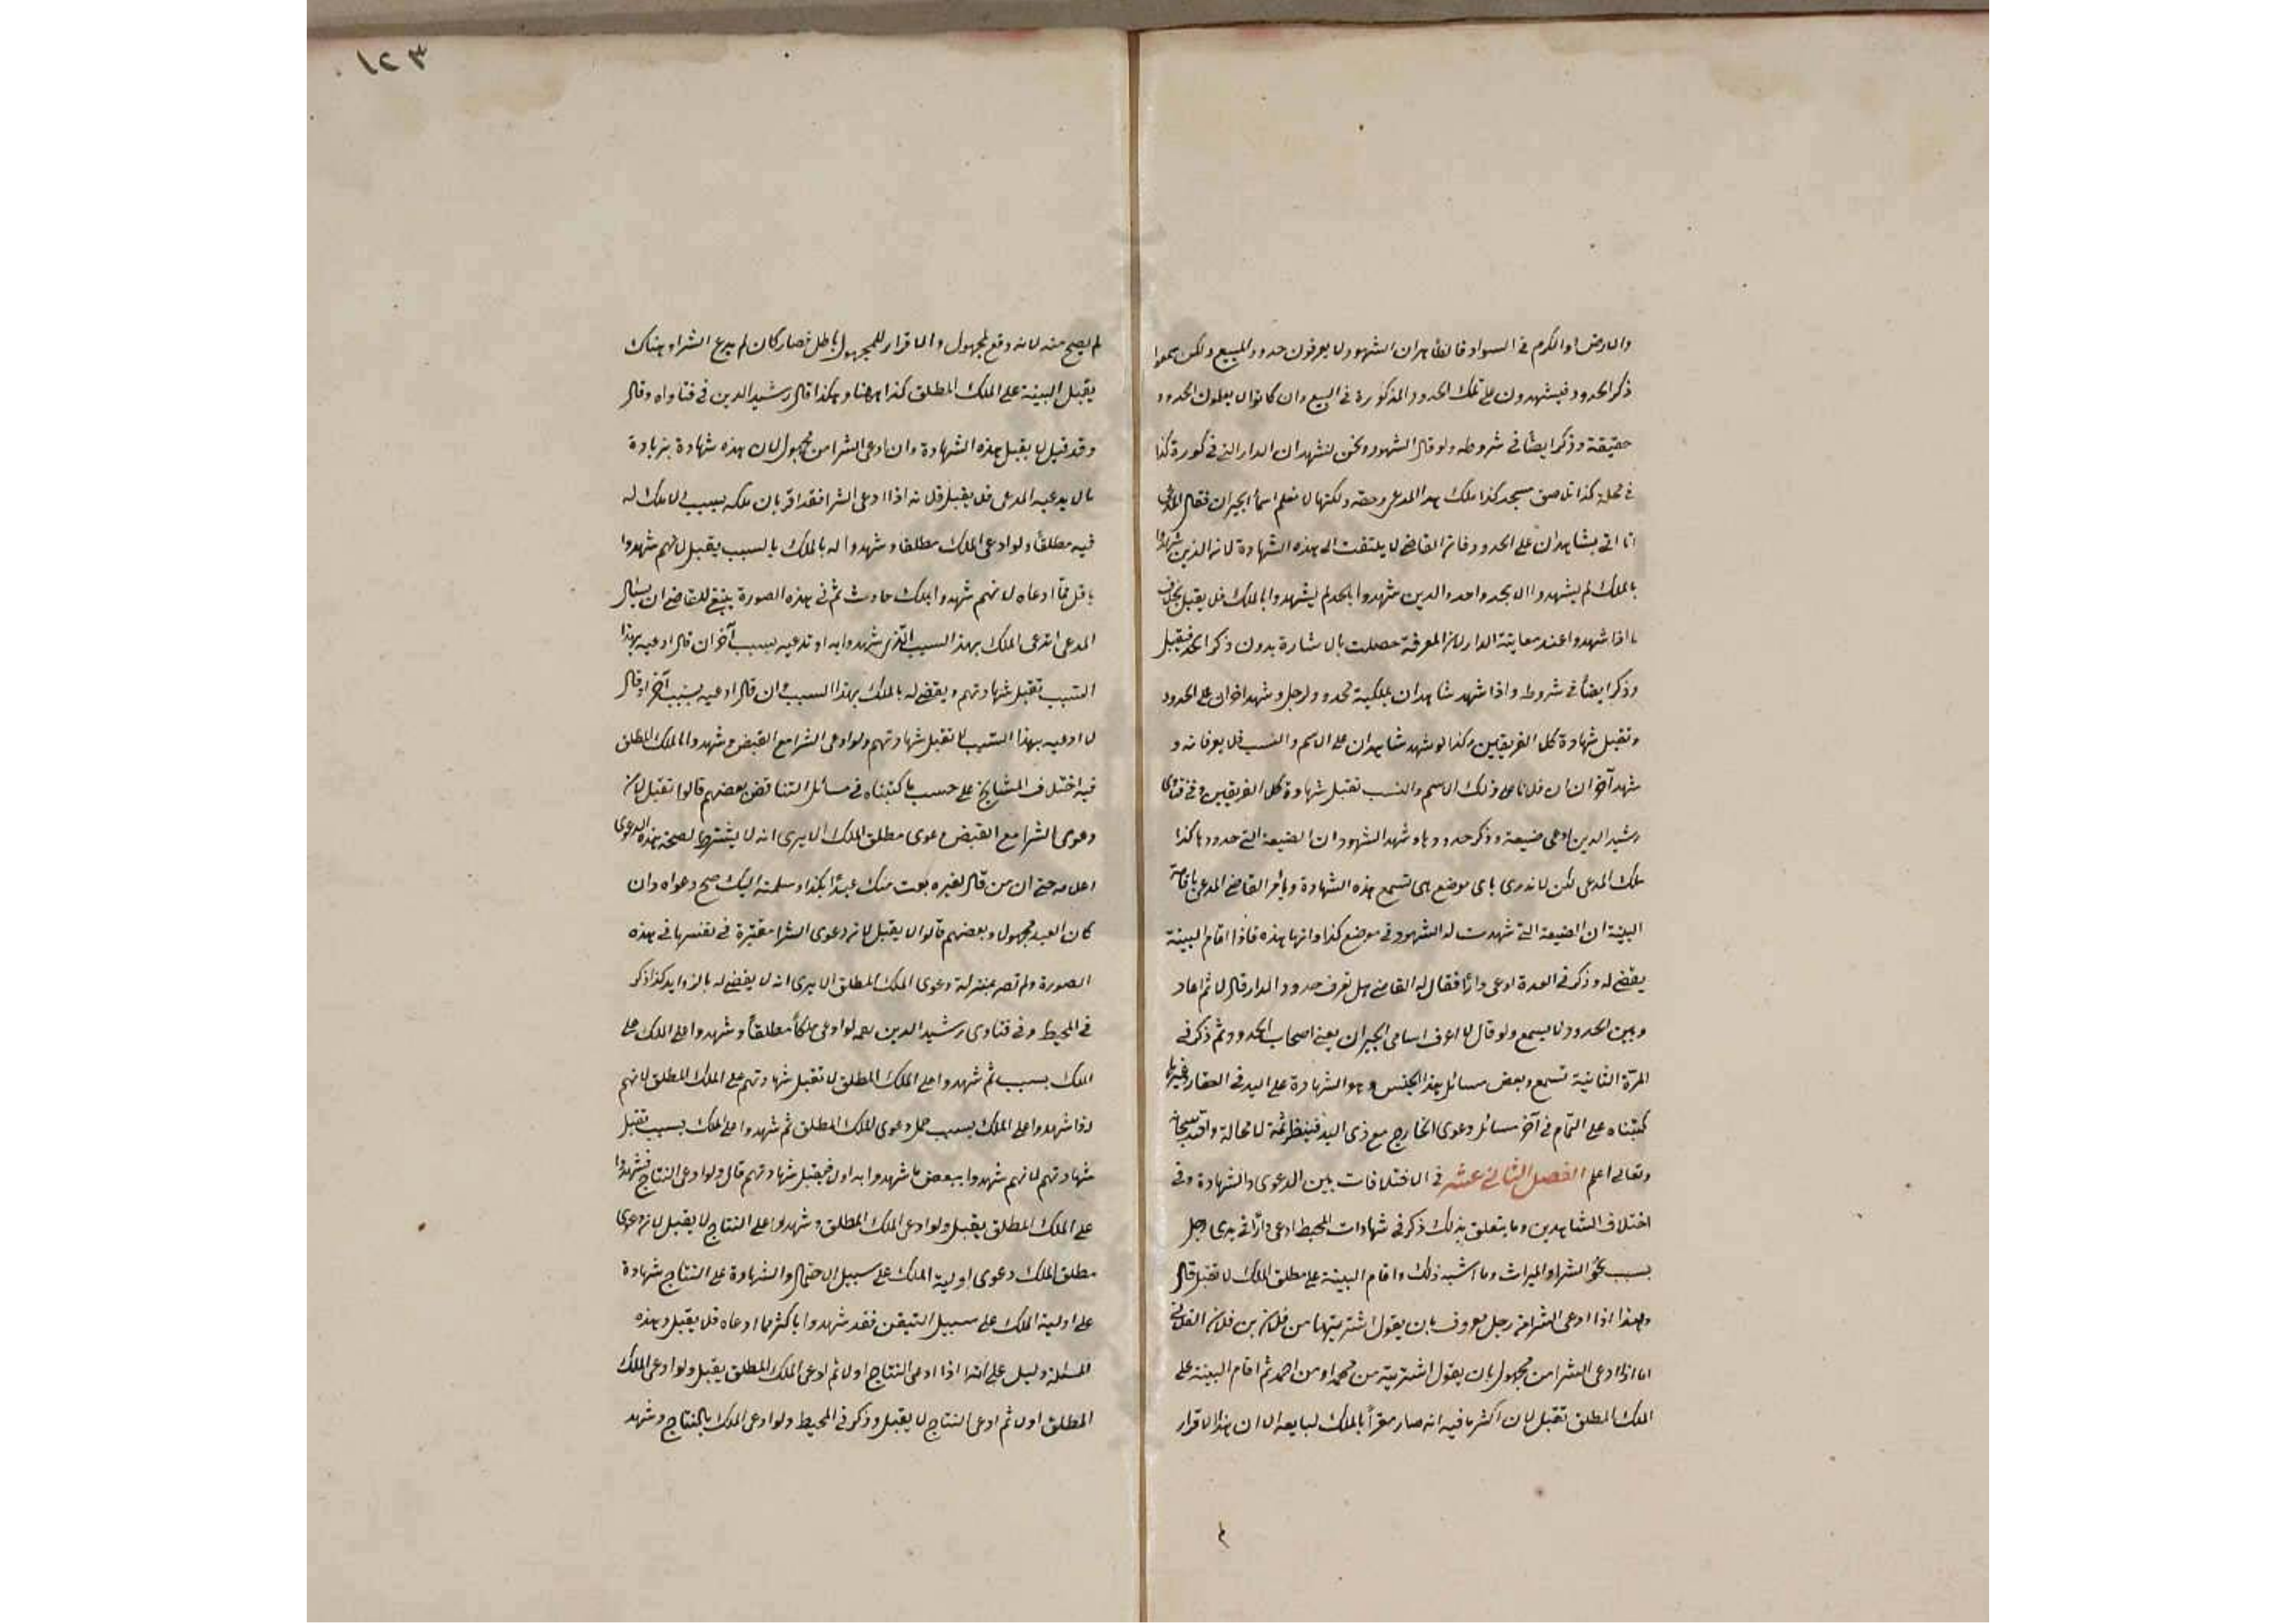 والارض او الكرم في السواد فالظاهران الشهود لا يعرفون حدود المبيع ولكن سمعوا
ذكر الحدود فيشهدون على تلك الحدود المذكورة في البيع وان كانوا لا يعلمون الحدود
حقيقة وذكر ايضًا في شروطه ولو قال الشهود ونحن نشهد ان الدار التي في كورة كذا
في محلة كذا تلاصق مسجد كذا ملك هذا المدعي وحقه ولكنها لا نعلم اسماء الجيران فقال المدعي
انا اتي بشاهدان على الحدود فان القاضي لا يلتفت الى هذه الشهادة لان الذين شهدوا
بالملك لم يشهدوا الا بحد واحد والذين شهدوا بالحد لم يشهدوا بالملك فلا يقبل بخلاف
ما اذا شهدوا عند معاينة الدار لان المعرفة حصلت بالاشارة بدون ذكر الحد فيقبل
وذكر ايضًا في شروطه واذا شهد شاهدان بملكية محدود لرجل وشهد اخران على الحدود
وتقبل شهادة كلا الفريقين وكذا لو شهد شاهدان على الاسم والنسب فلا يعرفانه و
شهد آخران ان فلانا على ذلك الاسم والنسب تقبل شهادة كلا الفريقين وفي فتاوى
رشيد الدين ادعى ضيعة وذكر حدودها وشهد الشهود ان الضيعة التي حدودها كذا
ملك المدعي لكن لا ندري باي موضع هي تسمع هذه الشهادة ويامر القاضي المدعي باقامة
البينة ان الضيعة التي شهدت له الشهود في موضع كذا وانها هذه فاذا اقام البينة
يقضي له وذكر في العدة ادعى دارًا فقال له القاضي هل تعرف حدود الدار قال لا ثم اعاد
وبين الحدود لا يسمع ولو قال لا اعرف اسامي الجيران يعني اصحاب الحدود ثم ذكر في
المرّة الثانية تسمع وبعض مسائل هذا الجنس وهو الشهادة على اليد في العقار وغيرها
كتبناه على التمام في آخر مسائل دعوى الخارج مع ذي اليد فينظر ثمة لا محالة والله سبحانه
وتعالى اعلم الفصل الثاني عشر في الاختلافات بين الدعوى والشهادة وفي
اختلاف الشاهدين وما يتعلق بذلك ذكر في شهادات المحيط ادعى دارًا في يدي رجل
بسبب نحو الشراء والميراث وما اشبه ذلك واقام البينة على مطلق الملك لا تقبل قال
وهذا اذا ادعى الشراء من رجل معروف بان يقول اشتريتها من فلان بن فلان الفلاني
اما اذا ادعى الشرا من مجهول بان يقول اشتريته من محمد او من احمد ثم اقام البينة على
الملك المطلق تقبل لان اكثر ما فيه انه صار مقرًا بالملك لبايعه الا ان هذا الاقرار
لم
١٢٣
لم يصح منه لانه وقع لمجهول والاقرار للمجهول باطل فصار كان لم يدع الشراء وهناك
يقبل البينة على الملك المطلق كذا ههنا وهكذا قال رشيد الدين في فتاواه وقال
وقد قيل لا يقبل هذه الشهادة وان ادعى الشرا من مجهول لان هذه شهادة بزيادة
ما لا يدعيه المدعي فلا يقبل قلانه اذا ادعى الشرا فقد اقر بان ملكه بسبب لا ملك له
فيه مطلقًا ولو ادعى الملك مطلقا وشهدوا له بالملك بالسبب يقبل لانهم شهدوا
باقل مما ادعاه لانهم شهدوا بملك حادث ثم في هذه الصورة ينبغي للقاضي ان يسأل
المدعي اتدعى الملك بهذا السبب الذي شهدوا به او تدعيه بسبب آخر ان قال ادعيه بهذا
السبب تقبل شهادتهم ويقضي له بالملك بهذا السبب وان قال ادعيه بسبب آخر او قال
لا ادعيه بهذا السبب لا تقبل شهادتهم ولو ادعى الشرا مع القبض وشهدوا بالملك المطلق
فيه اختلاف المشايخ على حسب ما كتبناه في مسائل التناقض بعضهم قالوا تقبل لان
دعوى الشرا مع القبض دعوى مطلق الملك الا يرى انه لا يشترط لصحة هذه الدعوى
اعلامه حتى ان من قال لغيره بعت منك عبدًا بكذا وسلمته اليك صح دعواه وان
كان العبد مجهولا وبعضهم قالوا لا يقبل لان دعوى الشرا معتبرة في نفسها في هذه
الصورة ولم تصر بمنزلة دعوى الملك المطلق الا يرى انه لا يقضي له بالزوايد كذا ذكر
في المحيط وفي فتاوى رشيد الدين رحمه لو ادعى ملكًا مطلقًا وشهدوا على الملك على
الملك بسبب ثم شهدوا على الملك المطلق لا تقبل شهادتهم على الملك المطلق لانهم
اذا شهدوا على الملك بسبب حمل دعوى الملك المطلق ثم شهدوا على الملك بسبب تقبل
شهادتهم لانهم شهدوا ببعض ما شهدوا به اولا فيقبل شهادتهم قال ولو ادعى النتاج فشهدوا
على الملك المطلق يقبل ولو ادعى الملك المطلق وشهدوا على النتاج لا يقبل لان دعوى
مطلق الملك دعوى اولية الملك على سبيل الاحتمال والشهادة على النتاج شهادة
على اولية الملك على سبيل التيقن فقد شهدوا باكثر مما ادعاه فلا يقبل وهذه
المسئلة دليل على انه اذا ادعى النتاج اولا ثم ادعى الملك المطلق يقبل ولو ادعى الملك
المطلق اولا ثم ادعى النتاج لا يقبل وذكر في المحيط ولو ادعى الملك بالنتاج وشهد